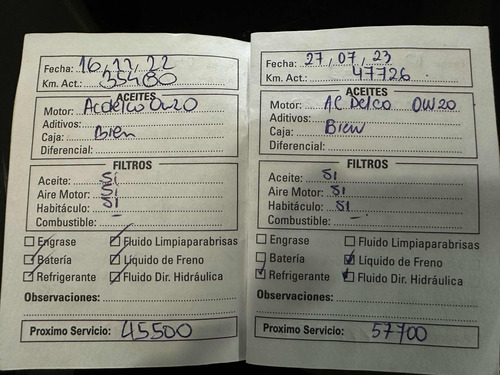 Fecha: 16, 11, 22
Km. Act.: 35480
ACEITES
Motor: Acdelco 0w20
Aditivos:
Caja: Bien
Diferencial:
FILTROS
Aceite: Si
Aire Motor: Si
Habitáculo: Si
Combustible: –
Engrase
Fluido Limpiaparabrisas
Batería
Líquido de Freno
Refrigerante
Fluido Dir. Hidráulica
Observaciones:
Proximo Servicio: 45500
Fecha: 27, 07, 23
Km. Act.: 47726
ACEITES
Motor: AC Delco 0W20
Aditivos:
Caja: Bien
Diferencial:
FILTROS
Aceite: Si
Aire Motor: Si
Habitáculo: Si
Combustible: –
Engrase
Fluido Limpiaparabrisas
Batería
Líquido de Freno
Refrigerante
Fluido Dir. Hidráulica
Observaciones:
Proximo Servicio: 57700